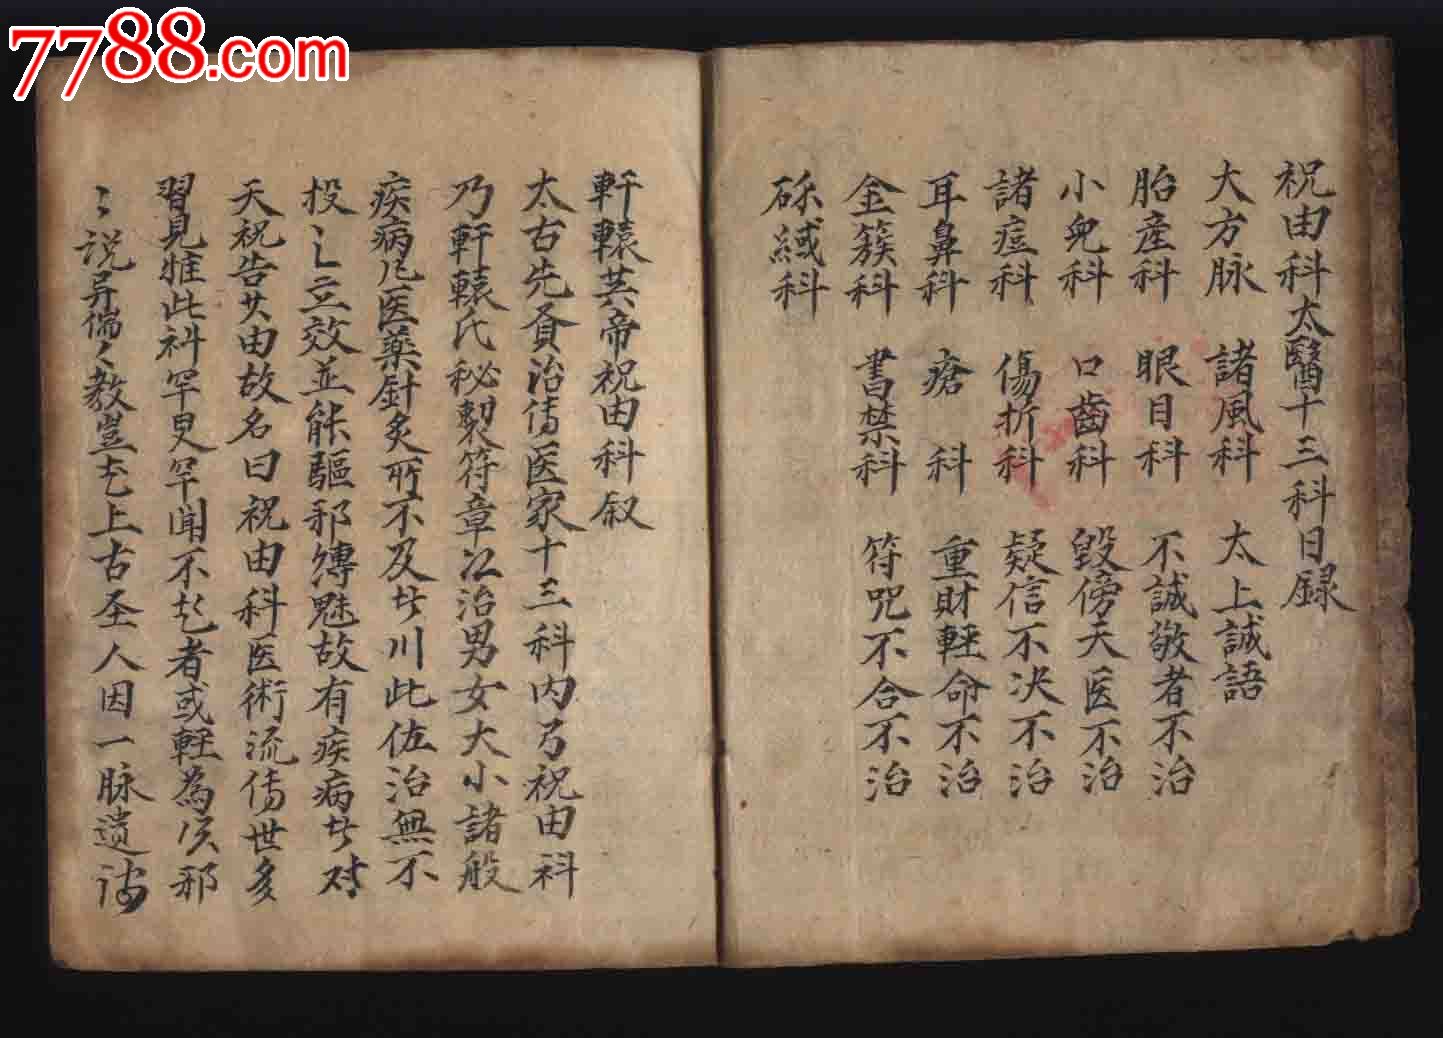 7788.com
祝由科太醫十三科目録
大方脉 諸風科 太上誠語
胎産科 眼目科 不誠敬者不治
小兒科 口齒科 毀傍天医不治
諸痘科 傷折科 疑信不决不治
耳鼻科 瘡科 重財輕命不治
金簇科 書禁科 符咒不合不治
砭緘科
軒轅黄帝祝由科叙
太古先賢治傳医家十三科内乃祝由科
乃軒轅氏秘製符章以治男女大小諸般
疾病凡医藥針炙所不及者以此佐治無不
投之立效並能驅邪縛魅故有疾病者对
天祝告其由故名曰祝由科医術流傳世多
習見惟此科罕見罕聞不知者或輕為左邪
之説异端之教豈知上古圣人因一脉遺